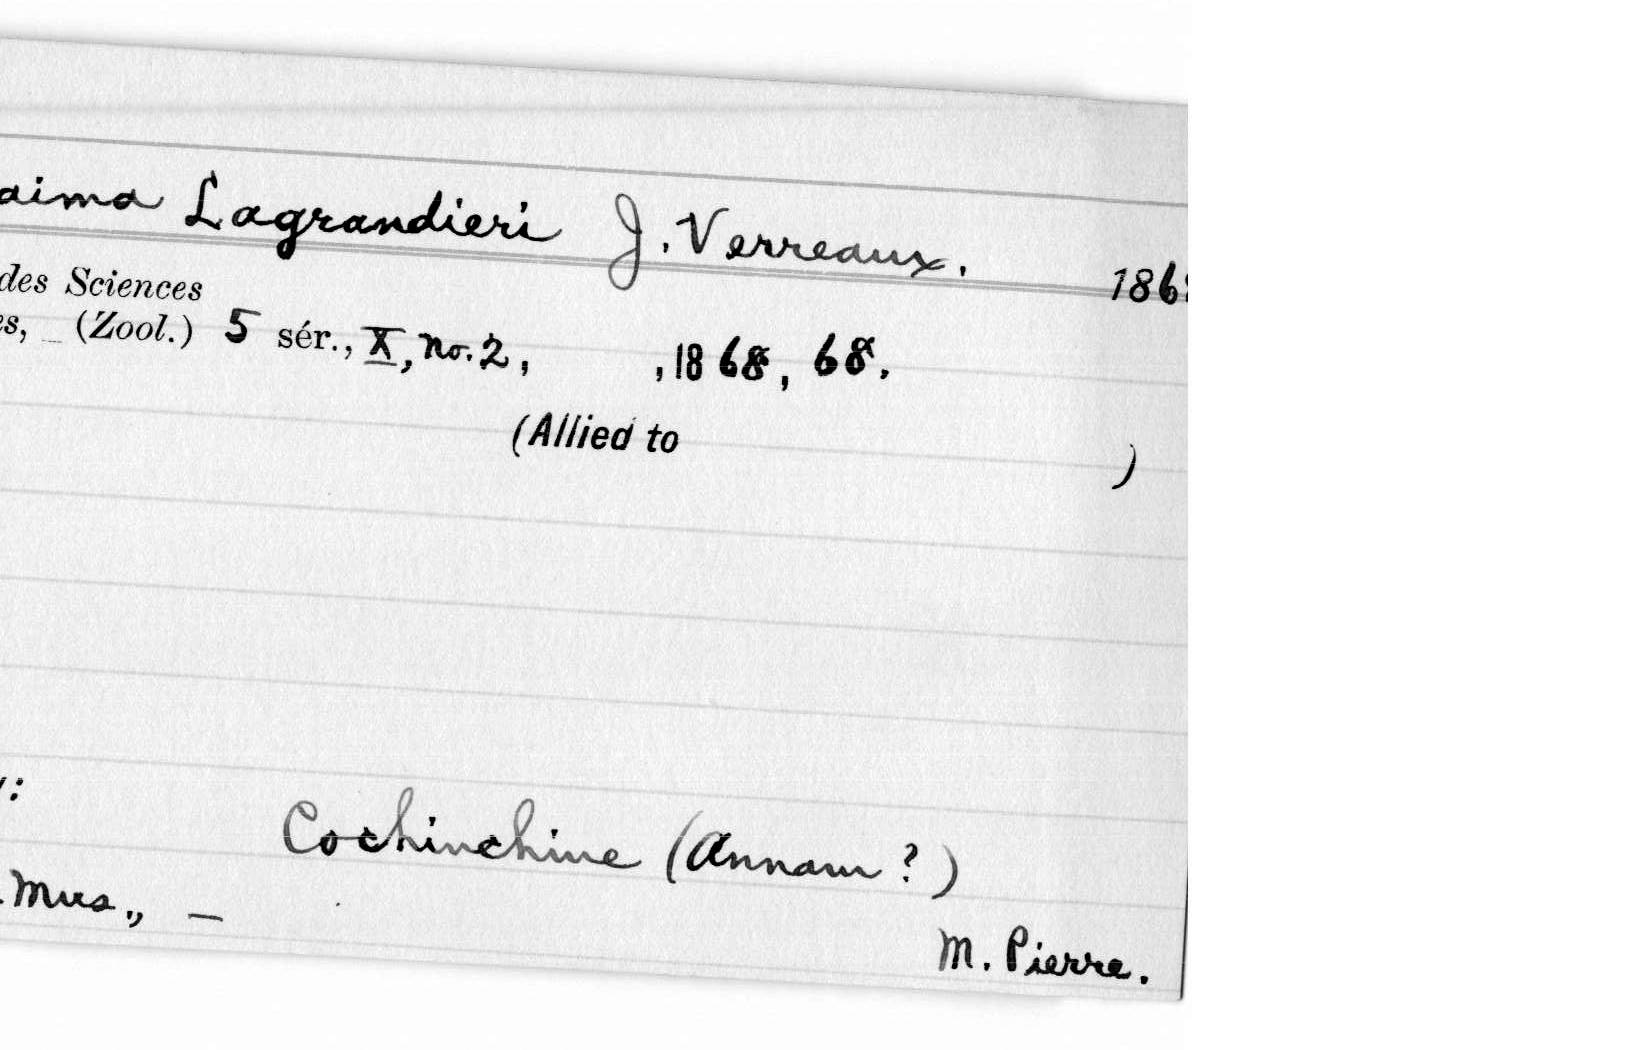 aima Lagrandieri J. Verreaux. 186
des Sciences
es, (Zool.) 5 sér., X, no. 2, , 1868, 68.
(Allied to )
:
Cochinchine (Annam?)
. Mus., —
M. Pierre.